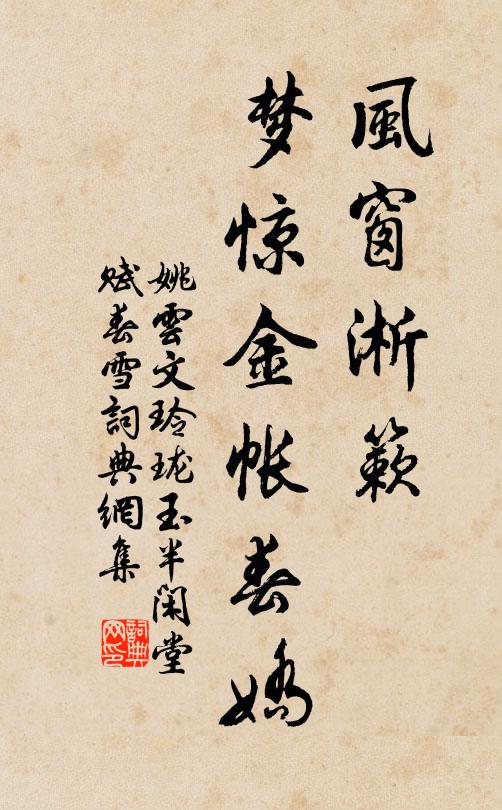 風窗淅簌
梦惊金帐春娇
姚雲文玲珑玉半闲堂
赋春雪詞典網集
詞典
网印